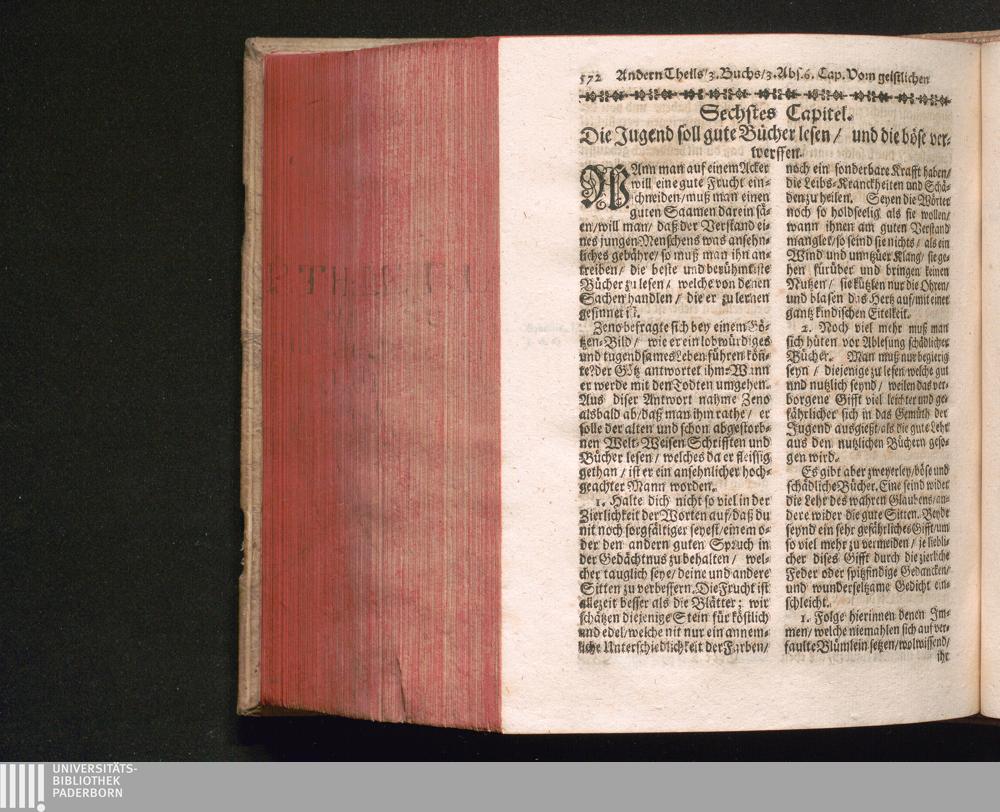 572 Andern Theils/3. Buchs/3. Abs. 6. Cap. Vom geistlichen
Sechstes Capitel.
Die Jugend soll gute Bücher lesen / und die böse ver-
werffen.
WAnn man auf einem Acker
will eine gute Frucht ein-
schneiden/muß man einen
guten Saamen darein sä-
en/will man/ daß der Verstand ei-
nes jungen Menschens was ansehn-
liches gebähre/ so muß man ihn an-
treiben/ die beste und berühmteste
Bücher zu lesen / welche von denen
Sachen handlen / die er zu lernen
gesinnet ist.
Zeno befragte sich bey einem Gö-
tzen-Bild / wie er ein lobwürdiges
und tugendsames Leben führen kön-
te? der Götz antwortet ihm: Wann
er werde mit den Todten umgehen.
Aus diser Antwort nahme Zeno
alsbald ab/daß man ihm rathe / er
solle der alten und schon abgestorb-
nen Welt-Weisen Schrifften und
Bücher lesen / welches da er fleissig
gethan / ist er ein ansehnlicher hoch-
geachter Mann worden.
1. Halte dich nicht so viel in der
Zierlichkeit der Worten auf/daß du
nit noch sorgfältiger seyest/einem o-
der den andern guten Spruch in
der Gedächtnus zu behalten / wel-
cher tauglich seye/ deine und andere
Sitten zu verbessern. Die Frucht ist
allezeit besser als die Blätter; wir
schätzen diejenige Stein für köstlich
und edel/welche nit nur ein annem-
liche Unterschiedlichkeit der Farben/
noch ein sonderbare Krafft haben/
die Leibs-Kranckheiten und Schä-
den zu heilen. Seyen die Wörter
noch so holdseelig als sie wollen/
wann ihnen am guten Verstand
manglet/so seind sie nichts / als ein
Wind und unnutzer Klang/ sie ge-
hen fürüber und bringen keinen
Nutzen / sie kützlen nur die Ohren/
und blasen das Hertz auf/mit einer
gantz kindischen Eitelkeit.
2. Noch viel mehr muß man
sich hüten vor Ablesung schädlicher
Bücher. Man muß nur begierig
seyn / diejenige zu lesen welche gut
und nutzlich seynd / weilen das ver-
borgene Gifft viel leichter und ge-
fährlicher sich in das Gemüth der
Jugend ausgießt/als die gute Lehr
aus den nutzlichen Büchern geso-
gen wird.
Es gibt aber zweyerley/böse und
schädliche Bücher. Eine seind wider
die Lehr des wahren Glaubens/an-
dere wider die gute Sitten. Beyde
seynd ein sehr gefährliches Gifft/um
so viel mehr zu vermeiden / je liebli-
cher dises Gifft durch die zierliche
Feder oder spitzfindige Gedancken/
und wunderseltzame Gedicht ein-
schleicht.
1. Folge hierinnen denen Im-
men/ welche niemahlen sich auf ver-
faulte Blümlein setzen/wolwissend/
ihr
UNIVERSITÄTS-
BIBLIOTHEK
PADERBORN